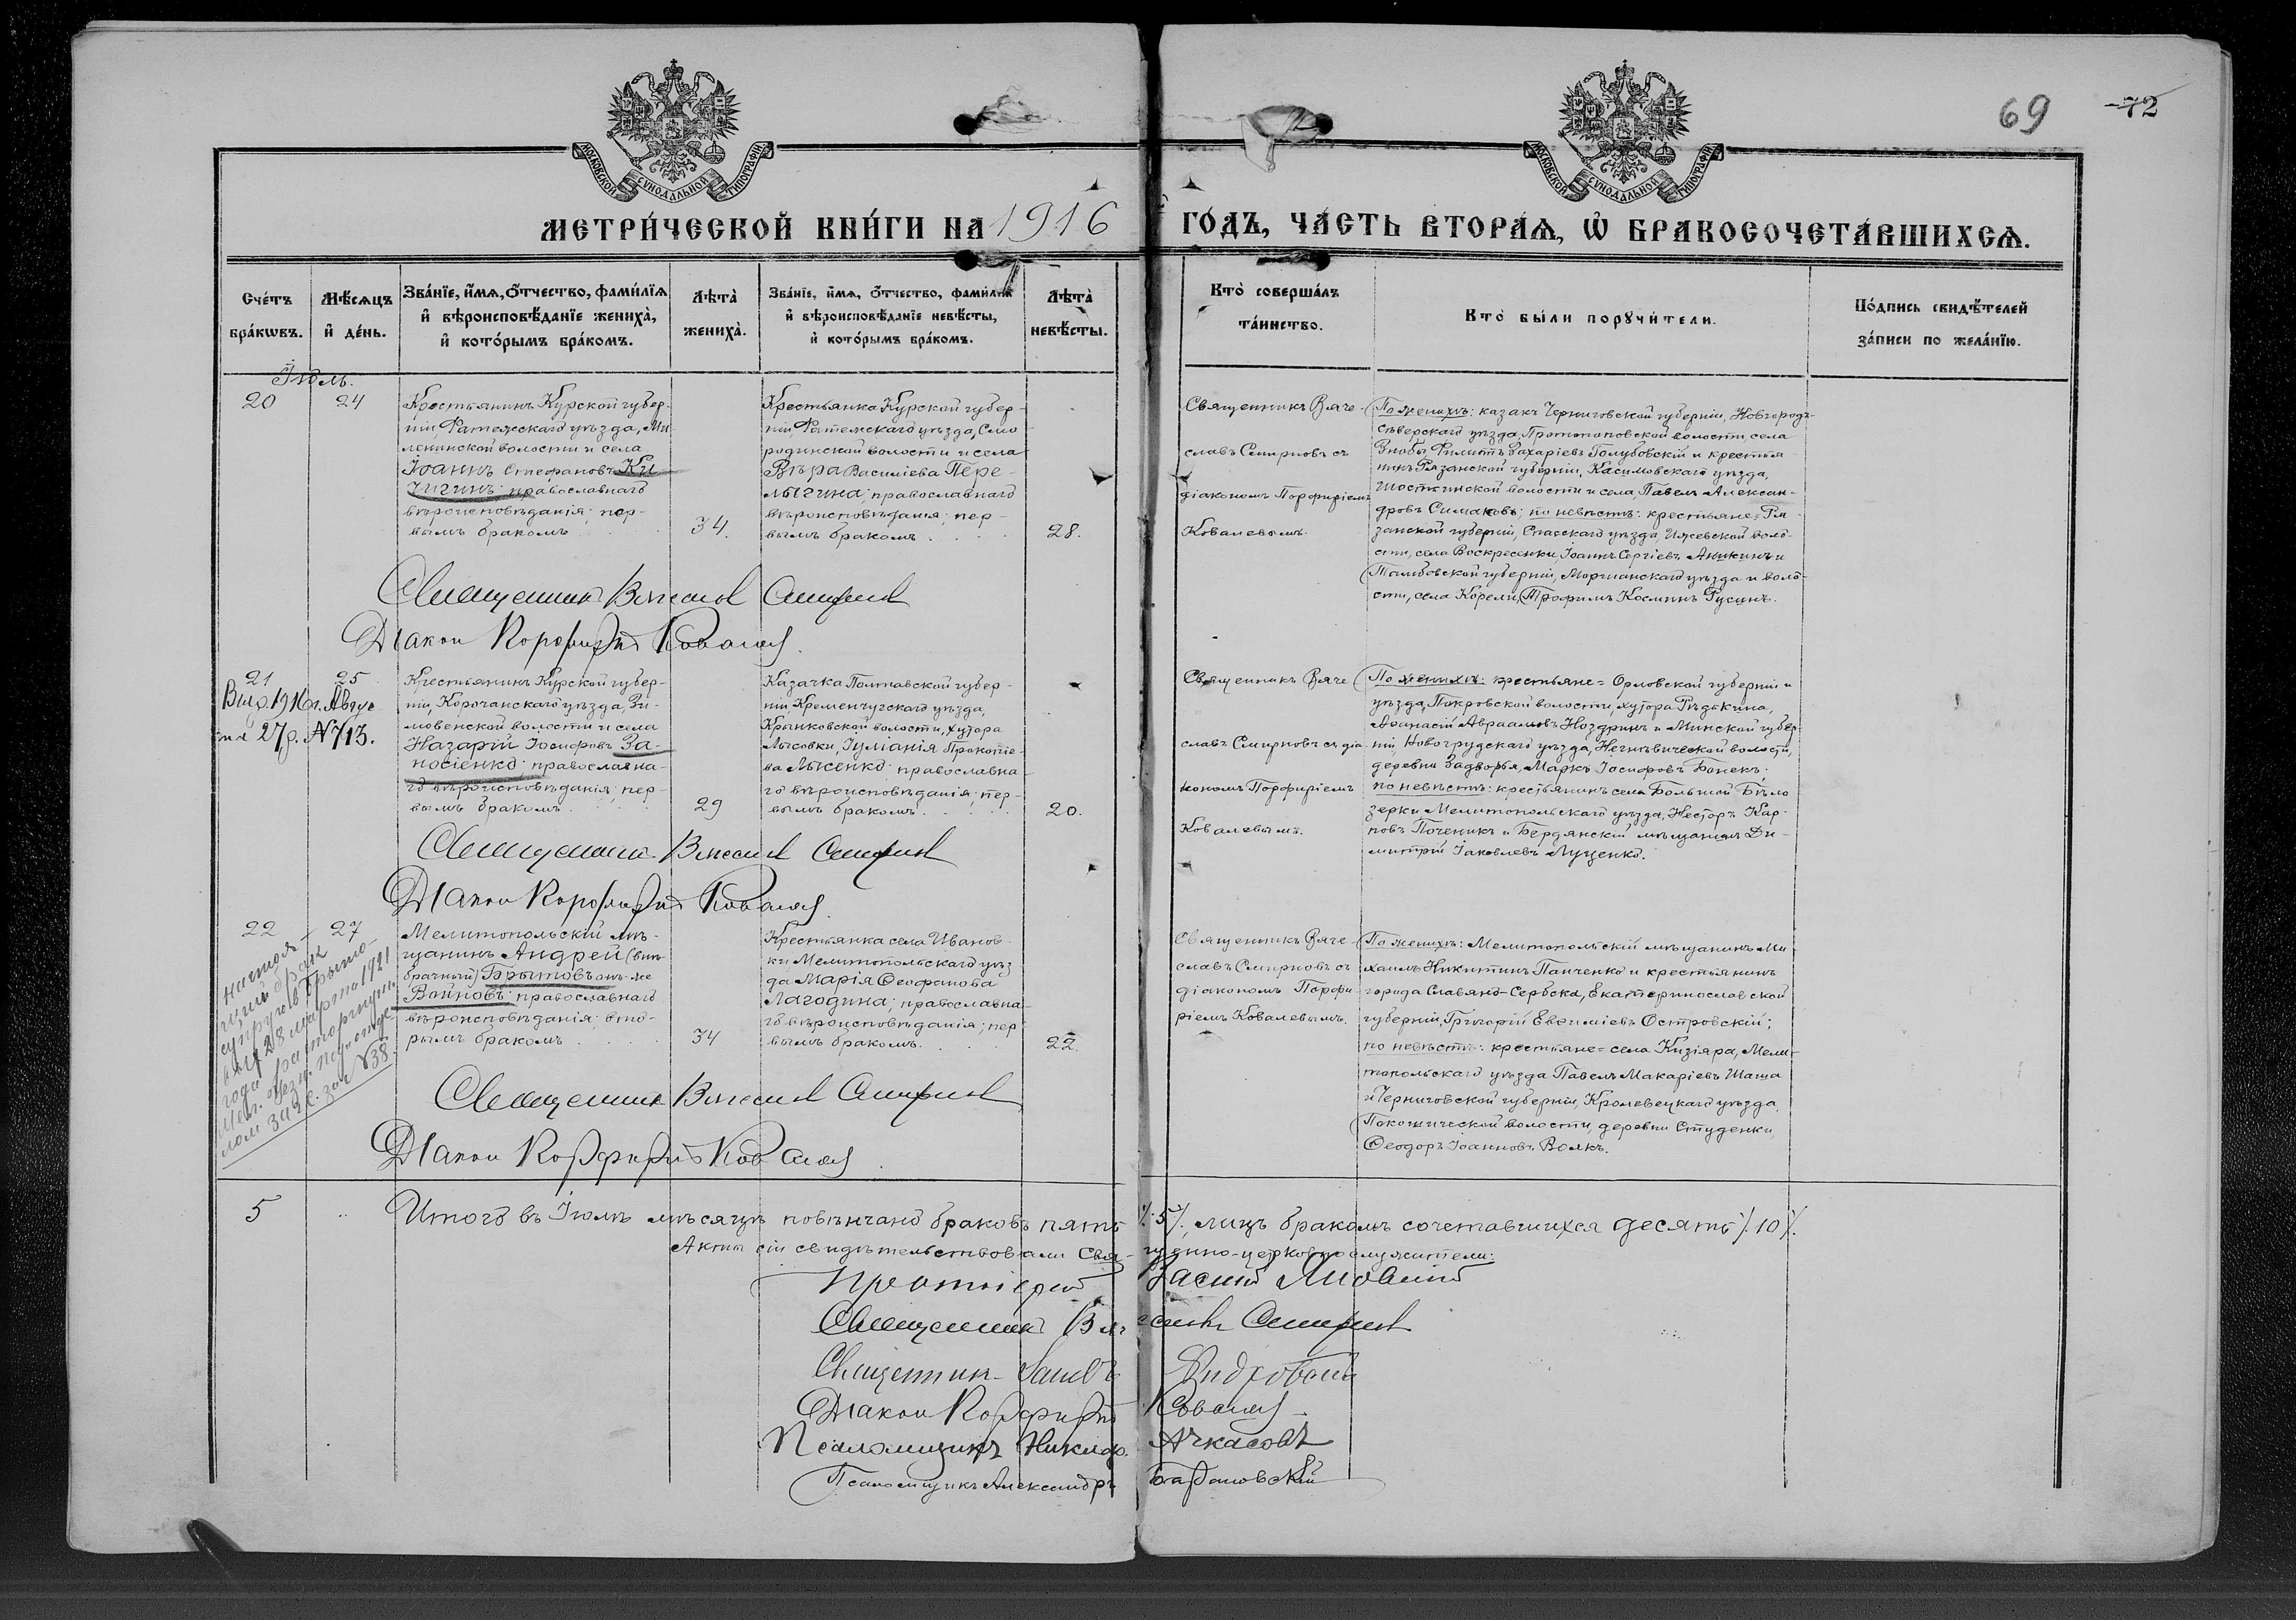 МОСКОВСКОЙ СУНОДАЛЬНОЙ ТИПОГРАФІИ
МОСКОВСКОЙ СУНОДАЛЬНОЙ ТИПОГРАФІИ
69
72
МЕТРИ́ЧЕСКОЙ КНИ́ГИ НА 1916 ГО́ДЪ, ЧА́СТЬ ВТОРА́Ѧ, Ѡ БРАКОСОЧЕТА́ВШИХСѦ.
Сче́тъ
бра́кѡвъ.
Мѣ́сѧцъ
и҆ де́нь.
Зва́нїе, и҆́мѧ, ѻ҆́тчество, фами́лїѧ
и҆ вѣроисповѣ́данїе жениха̀,
и҆ кото́рымъ бра́комъ.
Лѣта̀
жениха̀.
Зва́нїе, и҆́мѧ, ѻ҆́тчество, фами́лїѧ
и҆ вѣроисповѣ́данїе невѣ́сты,
и҆ кото́рымъ бра́комъ.
Лѣта̀
невѣ́сты.
Кто̀ соверша́лъ
та́инство.
Кто̀ бы́ли порꙋчи́тели.
По́дпись свидѣ́телей
за́писи по жела́нїю.
Іюль.
20
24
Крестьянинъ Курской губер-
ніи, Фатежскаго уѣзда, Ми-
ленинской волости и села
Іоаннъ Стефановъ Ки-
чигинъ; православнаго
вѣроисповѣданія; пер-
вымъ бракомъ
34.
Крестьянка Курской губер-
ніи, Фатежскаго уѣзда, Смо
родинской волости и села
Вѣра Василіева Пере-
лыгина; православнаго
вѣроисповѣданія; пер-
вымъ бракомъ
28.
Священникъ Вяче-
славъ Смирновъ съ
діакономъ Порфиріемъ
Ковалевымъ.
По женихѣ: казакъ Черниговской губерніи, Новгородъ-
сѣверскаго уѣзда, Протопоповской волости, села
Знобы Филиппъ Захаріевъ Голубовскій и крестья-
нинъ Рязанской губерніи, Касимовскаго уѣзда,
волости и села, Павелъ Алексан-
дровъ Симаковъ; по невѣстѣ: крестьяне= Ря-
занской губерніи, Спасскаго уѣзда, Ижевской воло-
сти, села Воскресенки, Іоаннъ Сергіевъ Аникинъ и
Тамбовской губерніи, Моршанскаго уѣзда и воло-
сти, села Корели, Трофимъ Косминъ Гусинъ.
Священникъ Вячеславъ Смирновъ
Діаконъ Порфирій Ковалевъ.
21
25
Выд. 1916 г. Авгус
та 27 д. № 713.
Крестьянинъ Курской губер-
ніи, Корочанскаго уѣзда, Зи-
мовенской волости и села
Назарій Іосифовъ За-
носіенко; православна-
го вѣроисповѣданія; пер-
вымъ бракомъ
29
Казачка Полтавской губер-
ніи, Кременчугскаго уѣзда,
Крынковской волости, хутора
Лысовки, Іуліанія Прокопіе-
ва Лысенко; православна-
го вѣроисповѣданія; пер-
вымъ бракомъ
20.
Священникъ Вяче
славъ Смирновъ съ діа-
кономъ Порфиріемъ
Ковалевымъ.
По женихѣ: крестьяне= Орловской губерніи и
уѣзда, Покровской волости, хутора Рѣдкина,
Аѳанасій Авраамовъ Ноздринъ и Минской губер-
ніи, Новогрудскаго уѣзда, Негнѣвической волости,
деревни Задворья, Маркъ Іосифовъ Бонекъ;
по невѣстѣ: крестьянинъ села Большой Бѣло
зерки Мелитопольскаго уѣзда, Несторъ Кар-
повъ Поченикъ и Бердянскій мѣщанинъ Ди-
митрій Іаковлевъ Луценко.
Священникъ Вячеславъ Смирновъ
Діаконъ Порфирій Ковалевъ.
22
27
настоя
щий брак
супругов Брыто-
вых 28 марта 1921
года расторгнут
зап №38.
Мелитопольскій мѣ-
щанинъ Андрей (внѣ-
брачный) Брытовъ онъ-же
Войновъ; православнаго
вѣроисповѣданія; вто-
рымъ бракомъ
34
Крестьянка села Иванов-
ки Мелитопольскаго уѣз
да Марія Ѳеофанова
Лагодина; православна-
го вѣроисповѣданія; пер
вымъ бракомъ.
22
Священникъ Вяче-
славъ Смирновъ съ
діакономъ Порфи-
ріемъ Ковалевымъ.
По женихѣ: Мелитопольскій мѣщанинъ Ми-
хаилъ Никитинъ Панченко и крестьянинъ
города Славяно-Сербска, Екатеринославской
губерніи, Григорій Евѳиміевъ Островскій;
по невѣстѣ: крестьяне= села Кизіяра, Мели-
топольскаго уѣзда Павелъ Макаріевъ Шаша
и Черниговской губерніи, Кролевецкаго уѣзда,
Покошической волости, деревни Студенки,
Ѳеодоръ Іоанновъ Волкъ.
Священникъ Вячеславъ Смирновъ
Діаконъ Порфирій Ковалевъ.
5
Итого въ Іюлѣ мѣсяцѣ повѣнчано браковъ пять %5%, лицъ бракомъ сочетавшихся десять %10%.
Акты сіи свидѣтельствовали Свя-щенно-церковнослужители:
Протоіерей Василій Яновскій
Священникъ Вячеславъ Смирновъ
Священник
Діаконъ Порфирій Ковалевъ
Псаломщикъ Никиф. Ачкасовъ
Псаломщикъ Александръ Барановскій